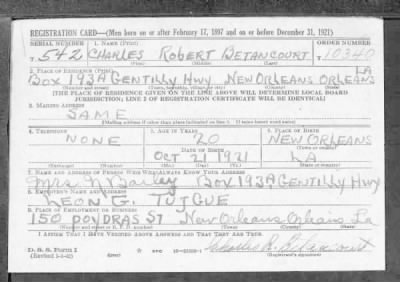 REGISTRATION CARD—(Men born on or after February 17, 1897 and on or before December 31, 1921)
SERIAL NUMBER 1. NAME (Print) ORDER NUMBER
T 542 CHARLES ROBERT BETANCOURT 10340
2. PLACE OF RESIDENCE (Print)
BOX 193A GENTILLY HWY NEW ORLEANS ORLEANS LA
[THE PLACE OF RESIDENCE GIVEN ON THE LINE ABOVE WILL DETERMINE LOCAL BOARD
JURISDICTION; LINE 2 OF REGISTRATION CERTIFICATE WILL BE IDENTICAL]
3. MAILING ADDRESS
SAME
[Mailing address if other than place indicated on line 2. If same insert word same]
4. TELEPHONE 5. AGE IN YEARS 6. PLACE OF BIRTH
NONE 20 NEW ORLEANS
DATE OF BIRTH
OCT 21 1921 LA
7. NAME AND ADDRESS OF PERSON WHO WILL ALWAYS KNOW YOUR ADDRESS
Mrs. M Bailey BOX 193A, GENTILLY HWY
8. EMPLOYER'S NAME AND ADDRESS
LEON G. TUJGUE
9. PLACE OF EMPLOYMENT OR BUSINESS
150 POYDRAS ST New Orleans Orleans La
I AFFIRM THAT I HAVE VERIFIED ABOVE ANSWERS AND THAT THEY ARE TRUE.
D. S. S. Form 1
(Revised 1-1-42) (over) Charles R. Betancourt
(Registrant's signature)